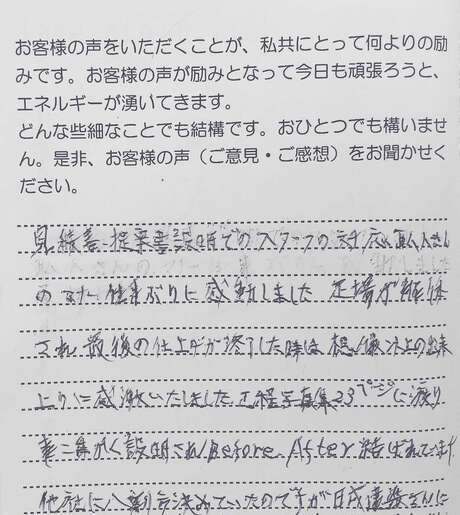 お客様の声をいただくことが、私共にとって何よりの励
みです。お客様の声が励みとなって今日も頑張ろうと、
エネルギーが湧いてきます。
どんな些細なことでも結構です。おひとつでも構いませ
ん。是非、お客様の声（ご意見・ご感想）をお聞かせく
ださい。
見積書・提案書説明でのスタッフの対応、職人さん
の 仕事ぶりに感動しました 足場が解体
され最後の仕上げが終了した時は想像以上の出来
上りに感激いたしました 工程写真集23ページに渡り
説明されBefore, Afterで結ばれています
他社に八割方決めていたのですが日成建設さんに